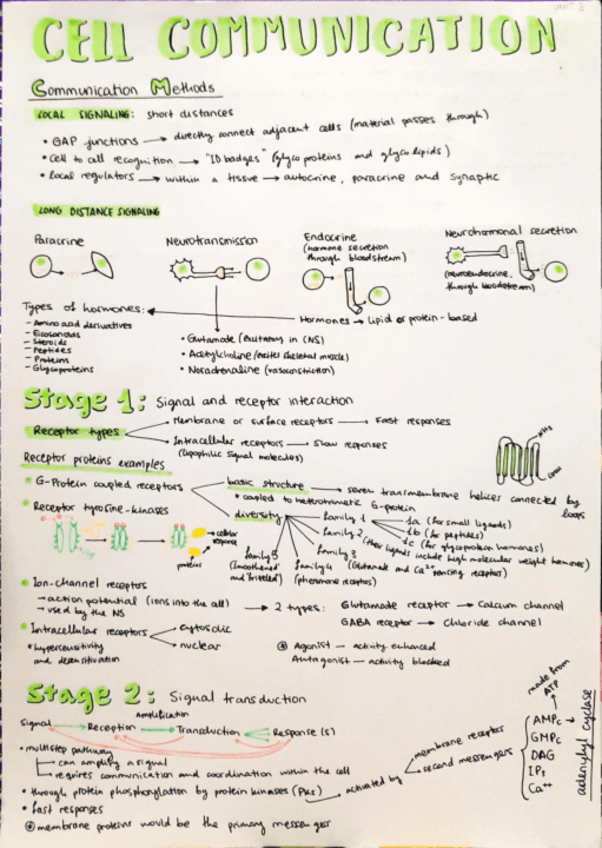 UNIT 3
CELL COMMUNICATION
Communication Methods
LOCAL SIGNALING: short distances
• GAP junctions → directly connect adjacent cells (material passes through)
• cell to cell recognition → "ID badges" (glycoproteins and glycolipids)
• local regulators → within a tissue → autocrine, paracrine and synaptic
LONG DISTANCE SIGNALING
Paracrine
Neurotransmission
Endocrine
(hormone secretion
through bloodstream)
Neurohormonal secretion
(neuroendocrine,
through bloodstream)
Types of hormones:
- Amino acid derivatives
- Eicosanoids
- Steroids
- Peptides
- Proteins
- Glycoproteins
Hormones → lipid or protein-based
• Glutamate (excitatory in CNS)
• Acetylcholine (excites skeletal muscle)
• Noradrenaline (vasoconstriction)
Stage 1: Signal and receptor interaction
Receptor types
Membrane or surface receptors → Fast responses
Intracellular receptors → Slow responses
(lipophilic signal molecules)
NH2
COOH
Receptor proteins examples
• G-Protein coupled receptors
basic structure → seven transmembrane helices connected by
loops
• coupled to heterotrimetric G-protein
diversity
family 1
1a (for small ligands)
1b (for peptides)
1c (for glycoprotein hormones)
family 2 (their ligands include high molecular weight hormones)
family 3
(Glutamate and Ca²⁺ sencing receptors)
family 4
(pheromone receptors)
family 5
(smoothened
and 'frizzled')
• Receptor tyrosine-kinases
cellular
response
proteins
• Ion-channel receptors
→ action potential (ions into the cell)
→ used by the NS
→ 2 types: Glutamate receptor → Calcium channel
GABA receptor → Chloride channel
• Intracellular receptors
cytosolic
nuclear
• hypersensitivity
and desensitivation
Agonist — activity enhanced
Antagonist — activity blocked
Stage 2: Signal transduction
Amplification
Signal → Reception → Transduction → Response(s)
• multistep pathway
can amplify a signal
requires communication and coordination within the cell
• through protein phosphorylation by protein kinases (PKs)
activated by
membrane receptor
second messengers
made from
ATP
AMPc →
GMPc
DAG
IP3
Ca⁺⁺
adenylyl cyclase
• fast responses
membrane proteins would be the primary messenger